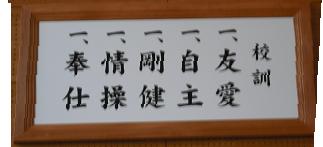 校訓
一、友愛
一、自主
一、剛健
一、情操
一、奉仕